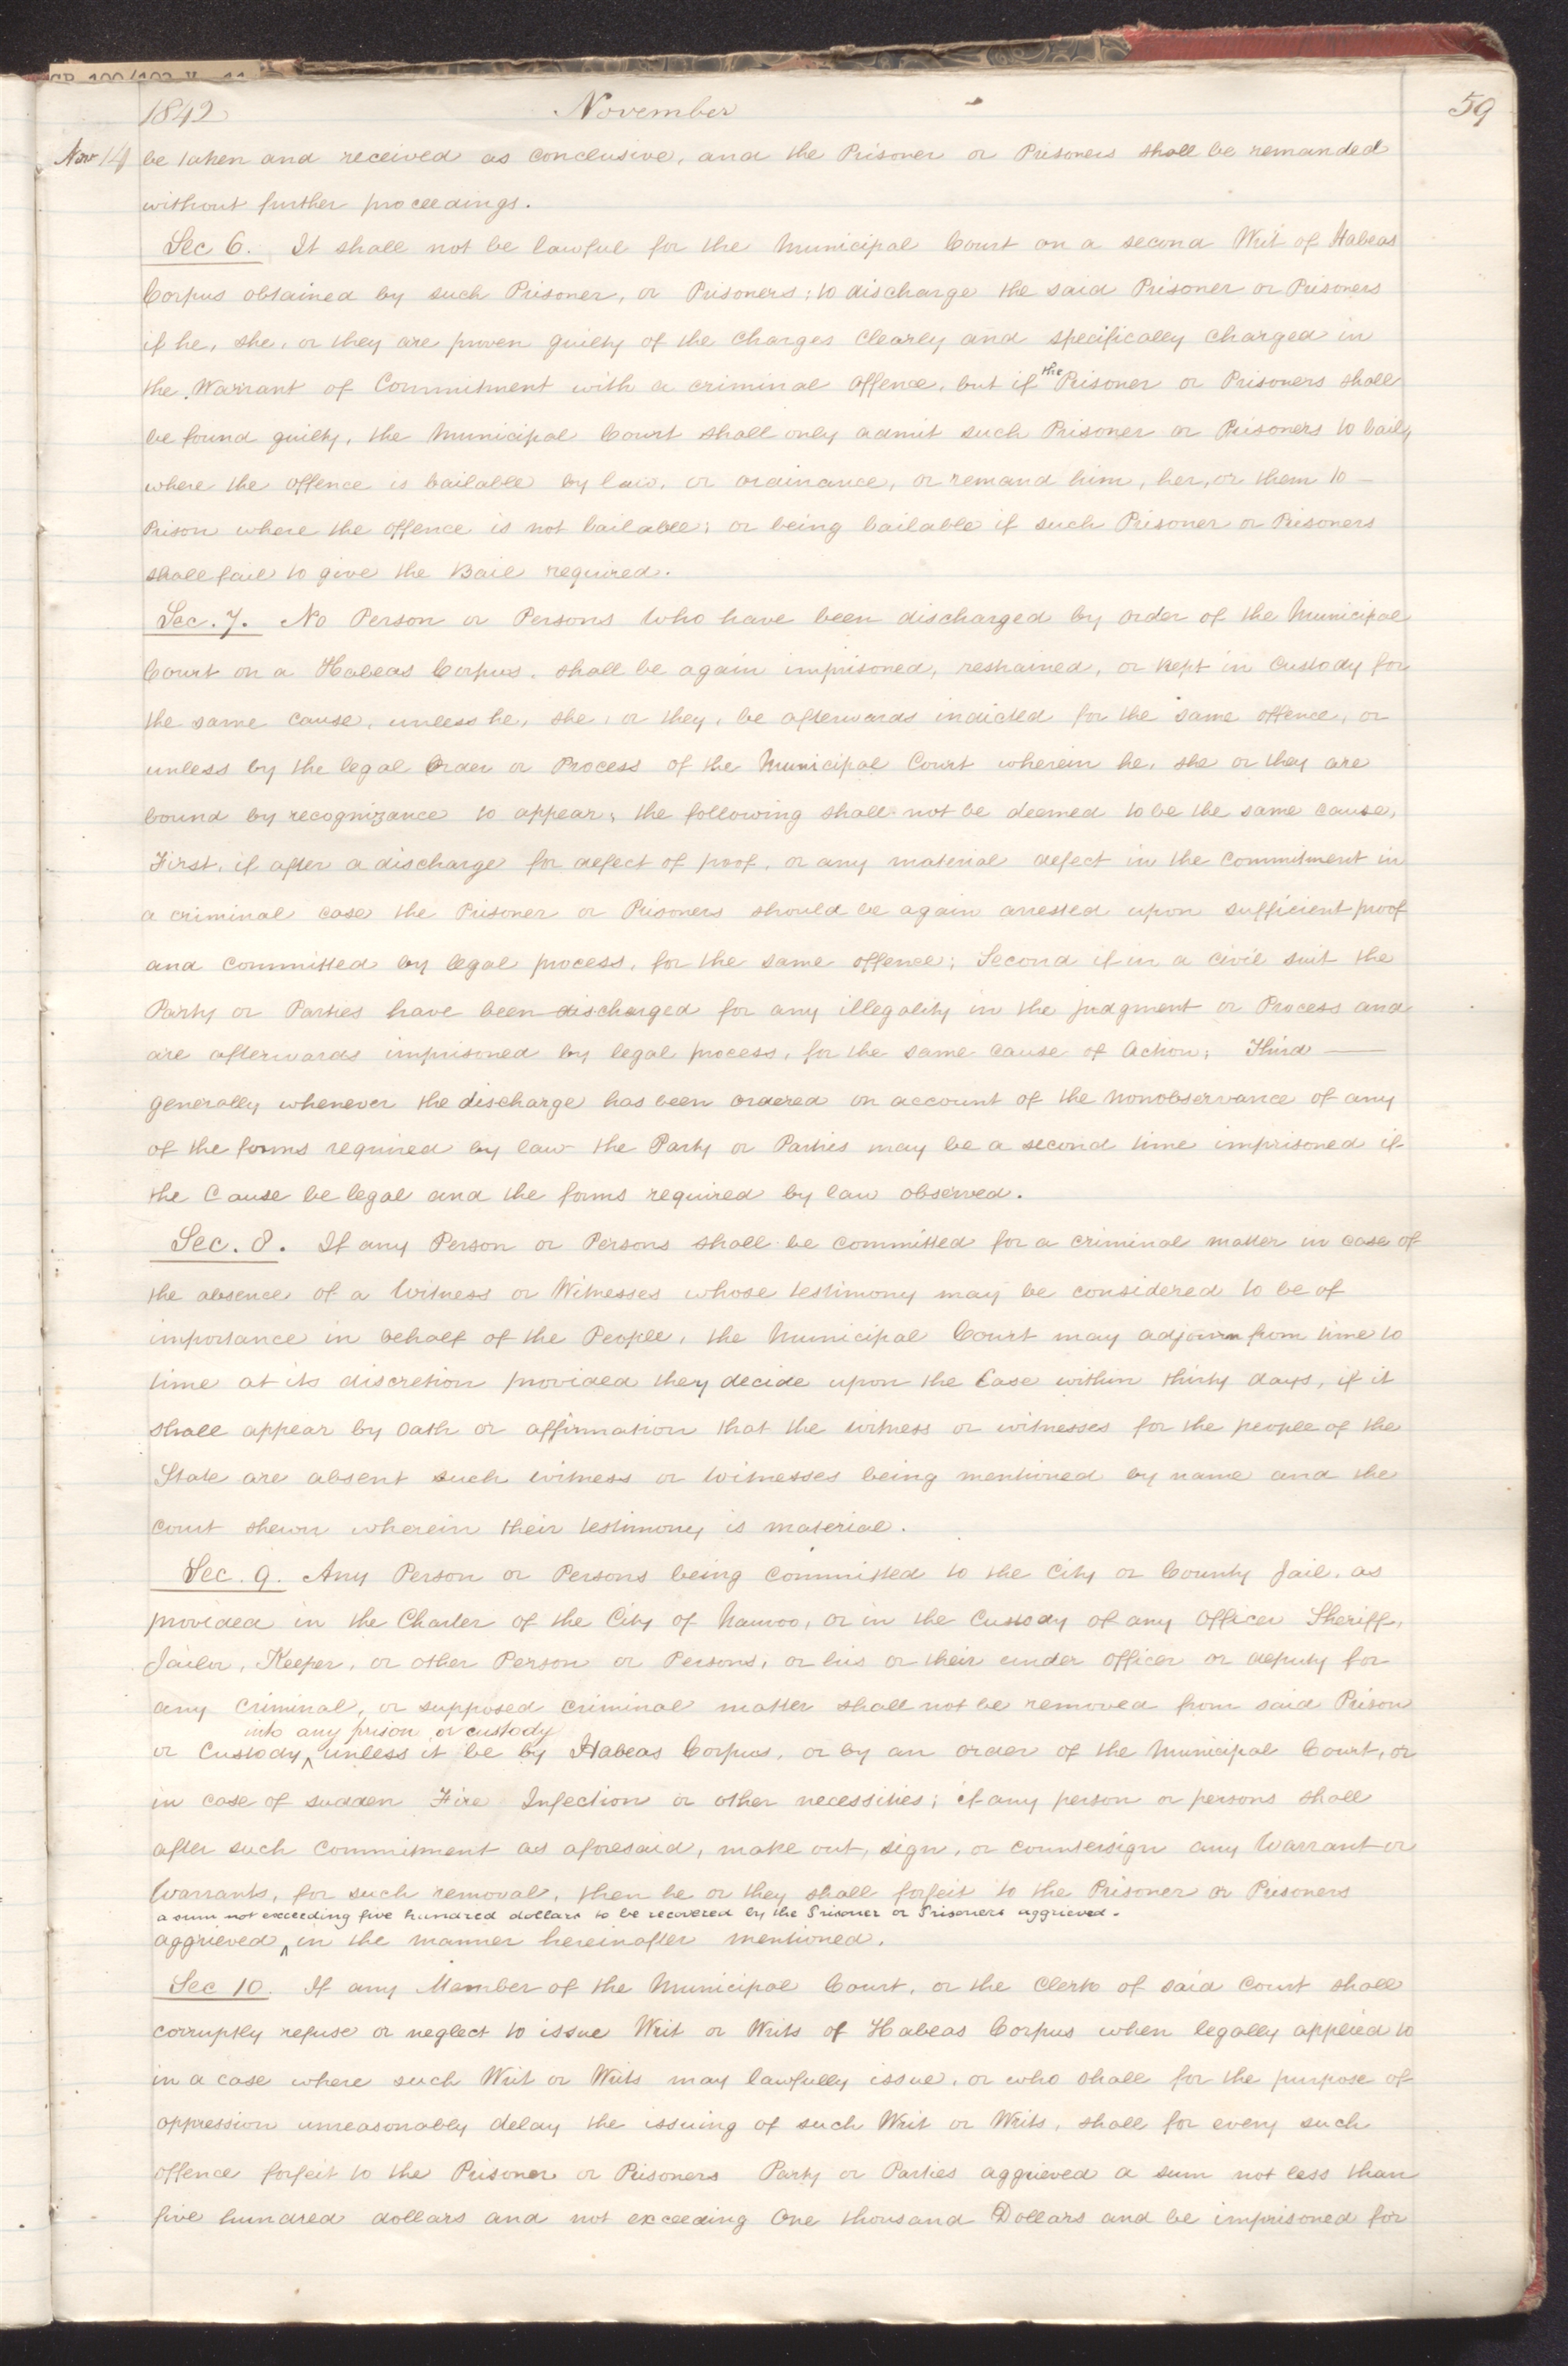 1842 November 59
Nov 14 be taken and received as conclusive, and the Prisoner or Prisoners shall be remanded
without further proceedings.
Sec 6. It shall not be lawful for the Municipal Court on a second Writ of Habeas
Corpus obtained by such Prisoner, or Prisoners; to discharge the said Prisoner or Prisoners
if he, she, or they are proven guilty of the charges clearly and specifically charged in
the Warrant of Commitment with a criminal offence, but if the Prisoner or Prisoners shall
be found guilty, the Municipal Court shall only admit such Prisoner or Prisoners to bail,
where the offence is bailable by law, or ordinance, or remand him, her, or them to —
Prison where the offence is not bailable; or being bailable if such Prisoner or Prisoners
shall fail to give the Bail required.
Sec. 7. No Person or Persons who have been discharged by order of the Municipal
Court on a Habeas Corpus, shall be again imprisoned, restrained, or kept in custody for
the same cause, unless he, she, or they, be afterwards indicted for the same offence, or
unless by the legal Order or Process of the Municipal Court wherein he, she or they are
bound by recognizance to appear; the following shall not be deemed to be the same cause,
First, if after a discharge for defect of proof, or any material defect in the commitment in
a criminal case the Prisoner or Prisoners should be again arrested upon sufficient proof
and committed by legal process, for the same offence; Second if in a civil suit the
Party or Parties have been discharged for any illegality in the judgment or Process and
are afterwards imprisoned by legal process, for the same cause of Action; Third —
generally whenever the discharge has been ordered on account of the nonobservance of any
of the forms required by law the Party or Parties may be a second time imprisoned if
the Cause be legal and the forms required by law observed.
Sec. 8. If any Person or Persons shall be committed for a criminal matter in case of
the absence of a Witness or Witnesses whose testimony may be considered to be of
importance in behalf of the People, the Municipal Court may adjourn from time to
time at its discretion provided they decide upon the Case within thirty days, if it
shall appear by oath or affirmation that the witness or witnesses for the people of the
State are absent such witness or witnesses being mentioned by name and the
court shewn wherein their testimony is material.
Sec. 9. Any Person or Persons being committed to the City or County Jail, as
provided in the Charter of the City of Nauvoo, or in the Custody of any Officer Sheriff,
Jailor, Keeper, or other Person or Persons, or his or their under officer or deputy for
any criminal, or supposed criminal matter shall not be removed from said Prison
into any prison or custody
or Custody ^ unless it be by Habeas Corpus, or by an order of the Municipal Court, or
in case of sudden Fire Infection or other necessities; if any person or persons shall
after such commitment as aforesaid, make out, sign, or countersign any Warrant or
Warrants, for such removal, then he or they shall forfeit to the Prisoner or Prisoners
a sum not exceeding five hundred dollars to be recovered by the Prisoner or Prisoners aggrieved.
aggrieved ^ in the manner hereinafter mentioned.
Sec 10. If any Member of the Municipal Court, or the Clerk of said Court shall
corruptly refuse or neglect to issue Writ or Writs of Habeas Corpus when legally applied to
in a case where such Writ or Writs may lawfully issue, or who shall for the purpose of
oppression unreasonably delay the issuing of such Writ or Writs, shall for every such
offence forfeit to the Prisoner or Prisoners Party or Parties aggrieved a sum not less than
five hundred dollars and not exceeding One thousand Dollars and be imprisoned for